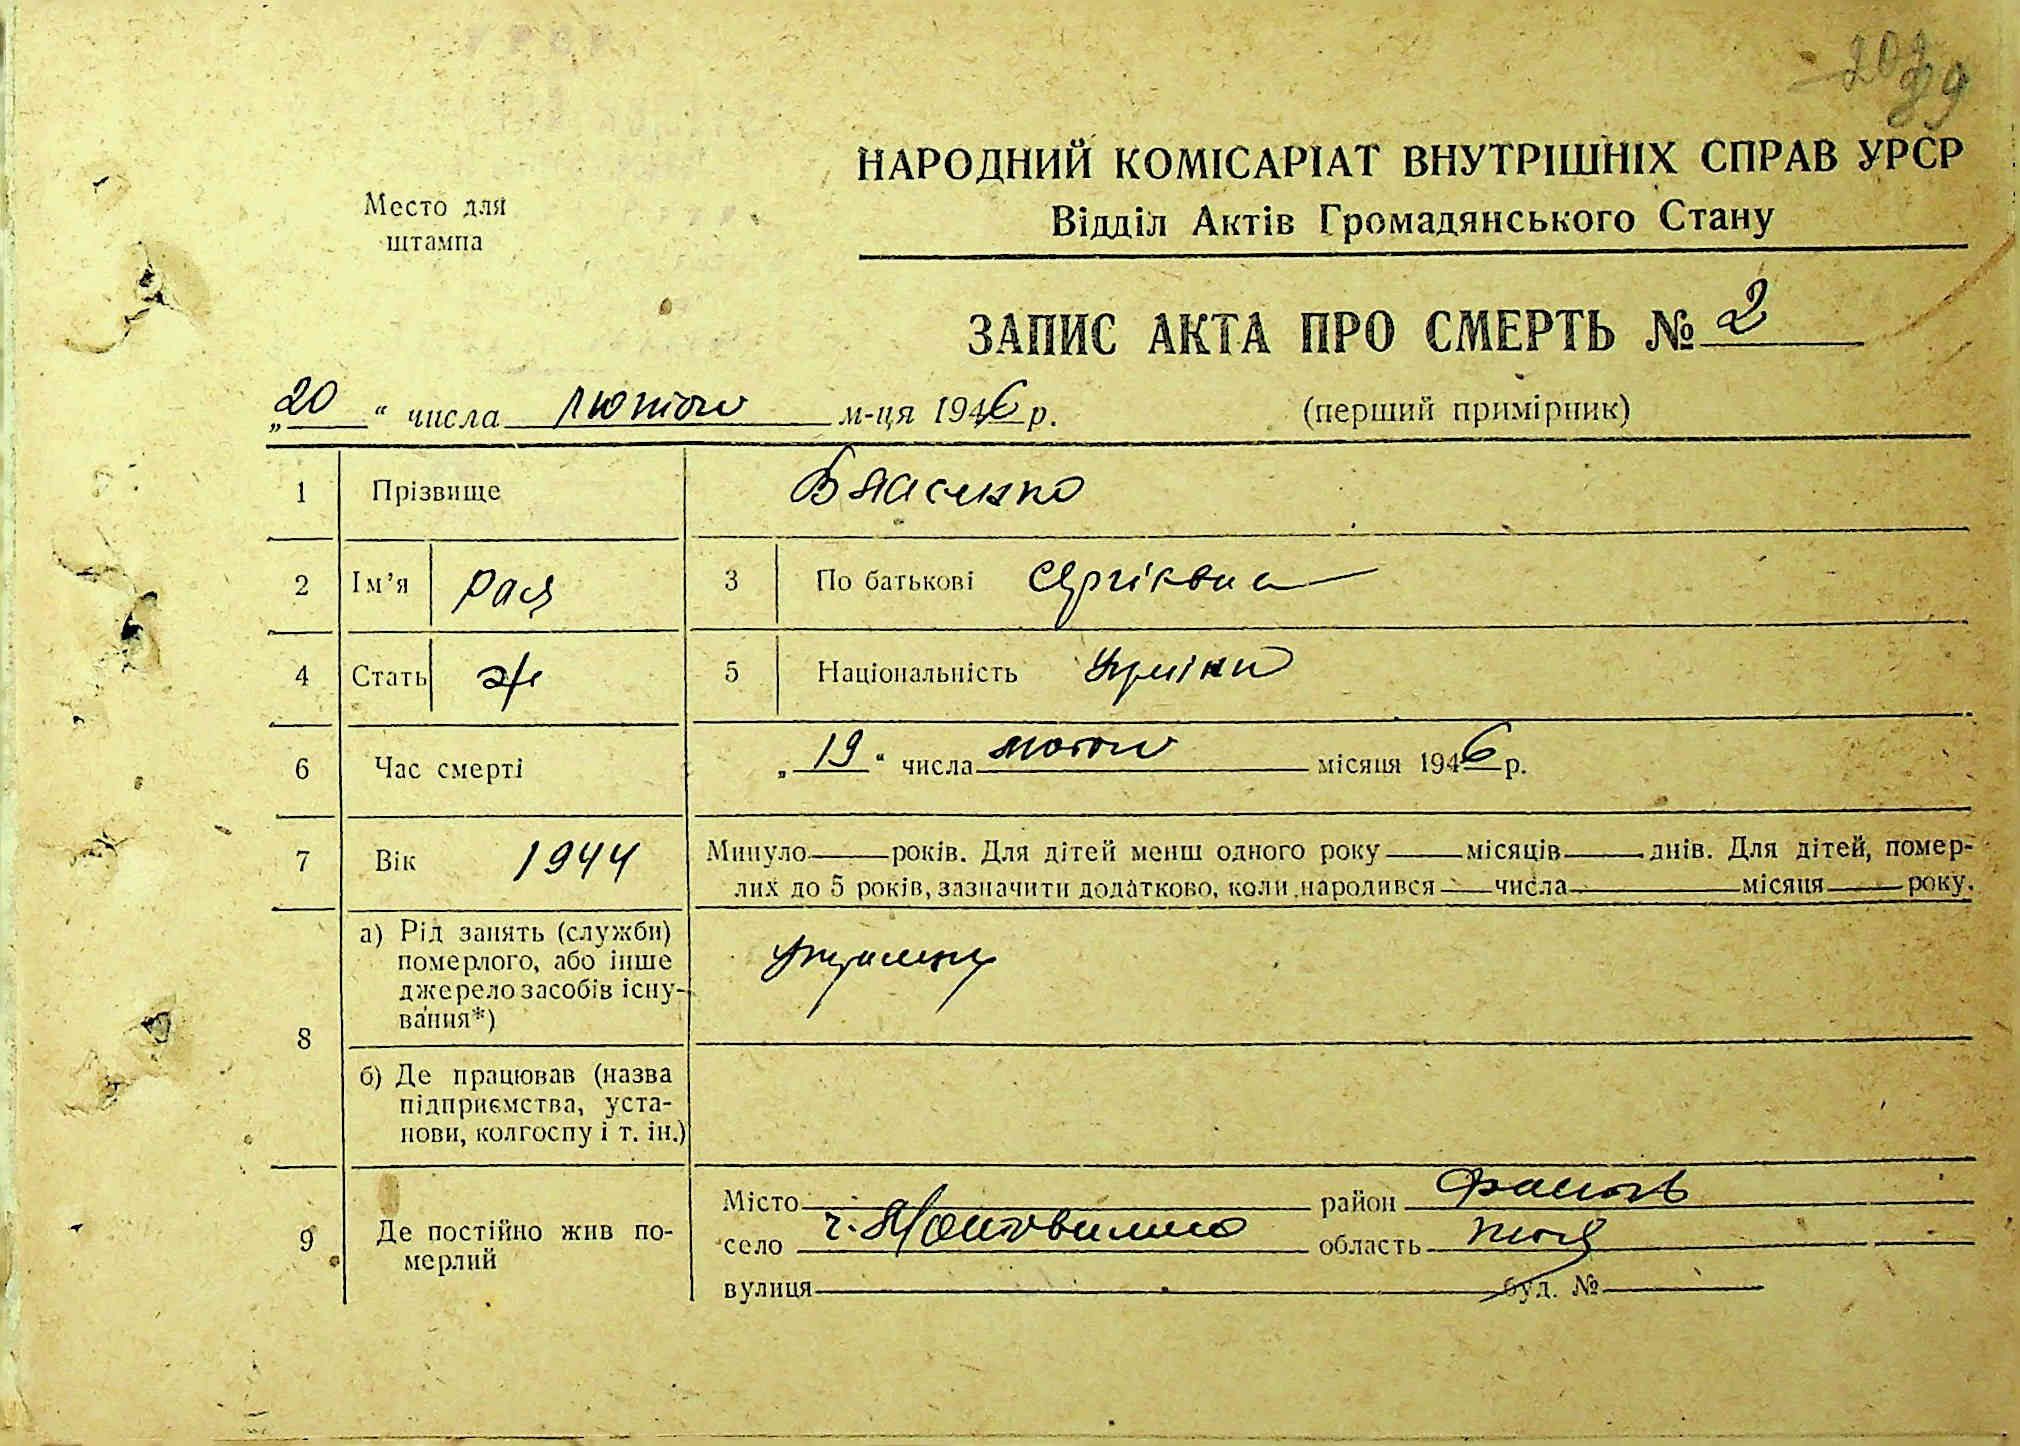 НАРОДНИЙ КОМІСАРІАТ ВНУТРІШНІХ СПРАВ УРСР
Место для
штампа
Відділ Актів Громадянського Стану
ЗАПИС АКТА ПРО СМЕРТЬ № 2
„20“ числа лютого м-ця 1946 р.
(перший примірник)
1 Прізвище Власенко
2 Ім’я Рая 3 По батькові Сергієвна
4 Стать ж 5 Національність
6 Час смерті „19“ числа лютого місяця 1946 р.
7 Вік 1944 Минуло років. Для дітей менш одного року місяців днів. Для дітей, помер-
лих до 5 років, зазначити додатково, коли народився числа місяця року.
8 а) Рід занять (служби)
померлого, або інше
джерело засобів існу-
вання*)
б) Де працював (назва
підприємства, уста-
нови, колгоспу і т. ін.)
9 Де постійно жив по-
мерлий
Місто район
село область
вулиця буд. №